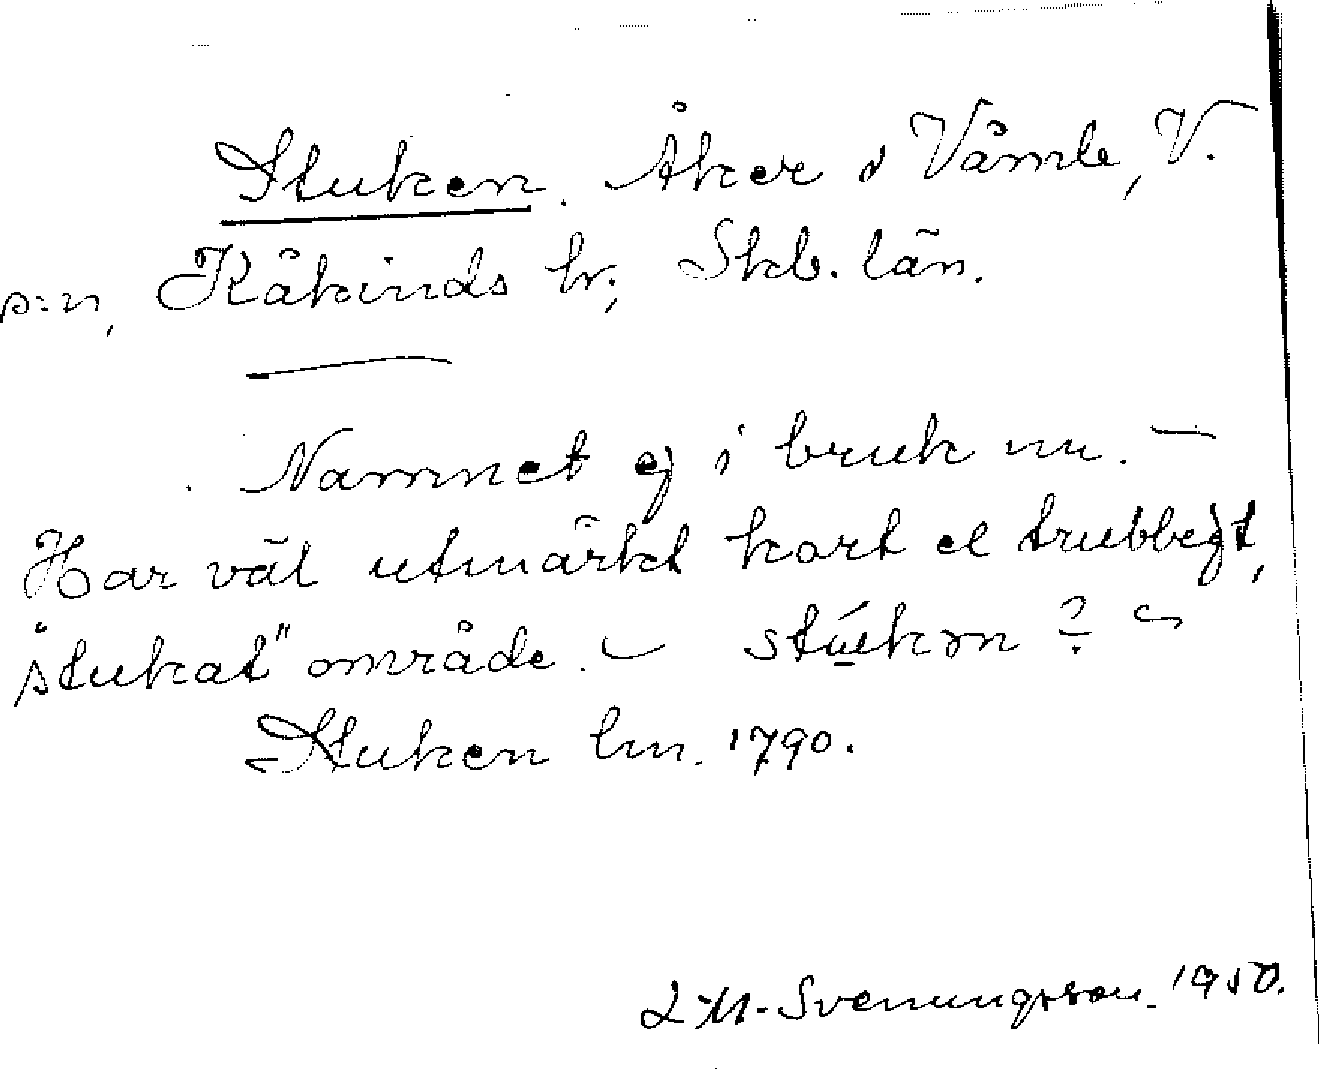 Stuken. Åker i Våmle, V.
s:n, Kåkinds hr., Skb. län.
Namnet ej i bruk nu. –
Har väl utmärkt kort el trubbigt,
"stukat" område. – stúkɔn ? –
Stuken lm. 1790.
L M. Svenungsson. 1950.